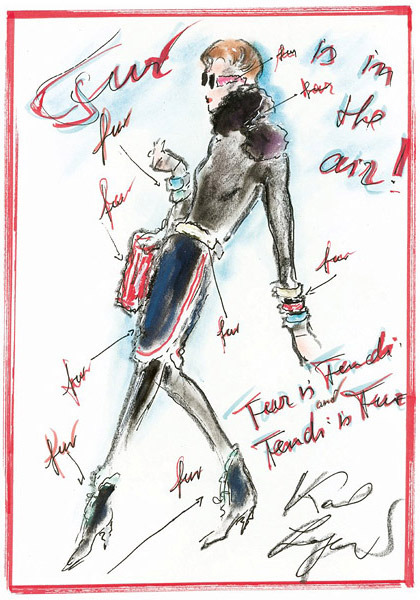 Fur
is in
the
air!
fur
fur
fur
fur
fur
fur
fur
fur
fur
Fur is Fendi
and
Fendi is Fur
Karl